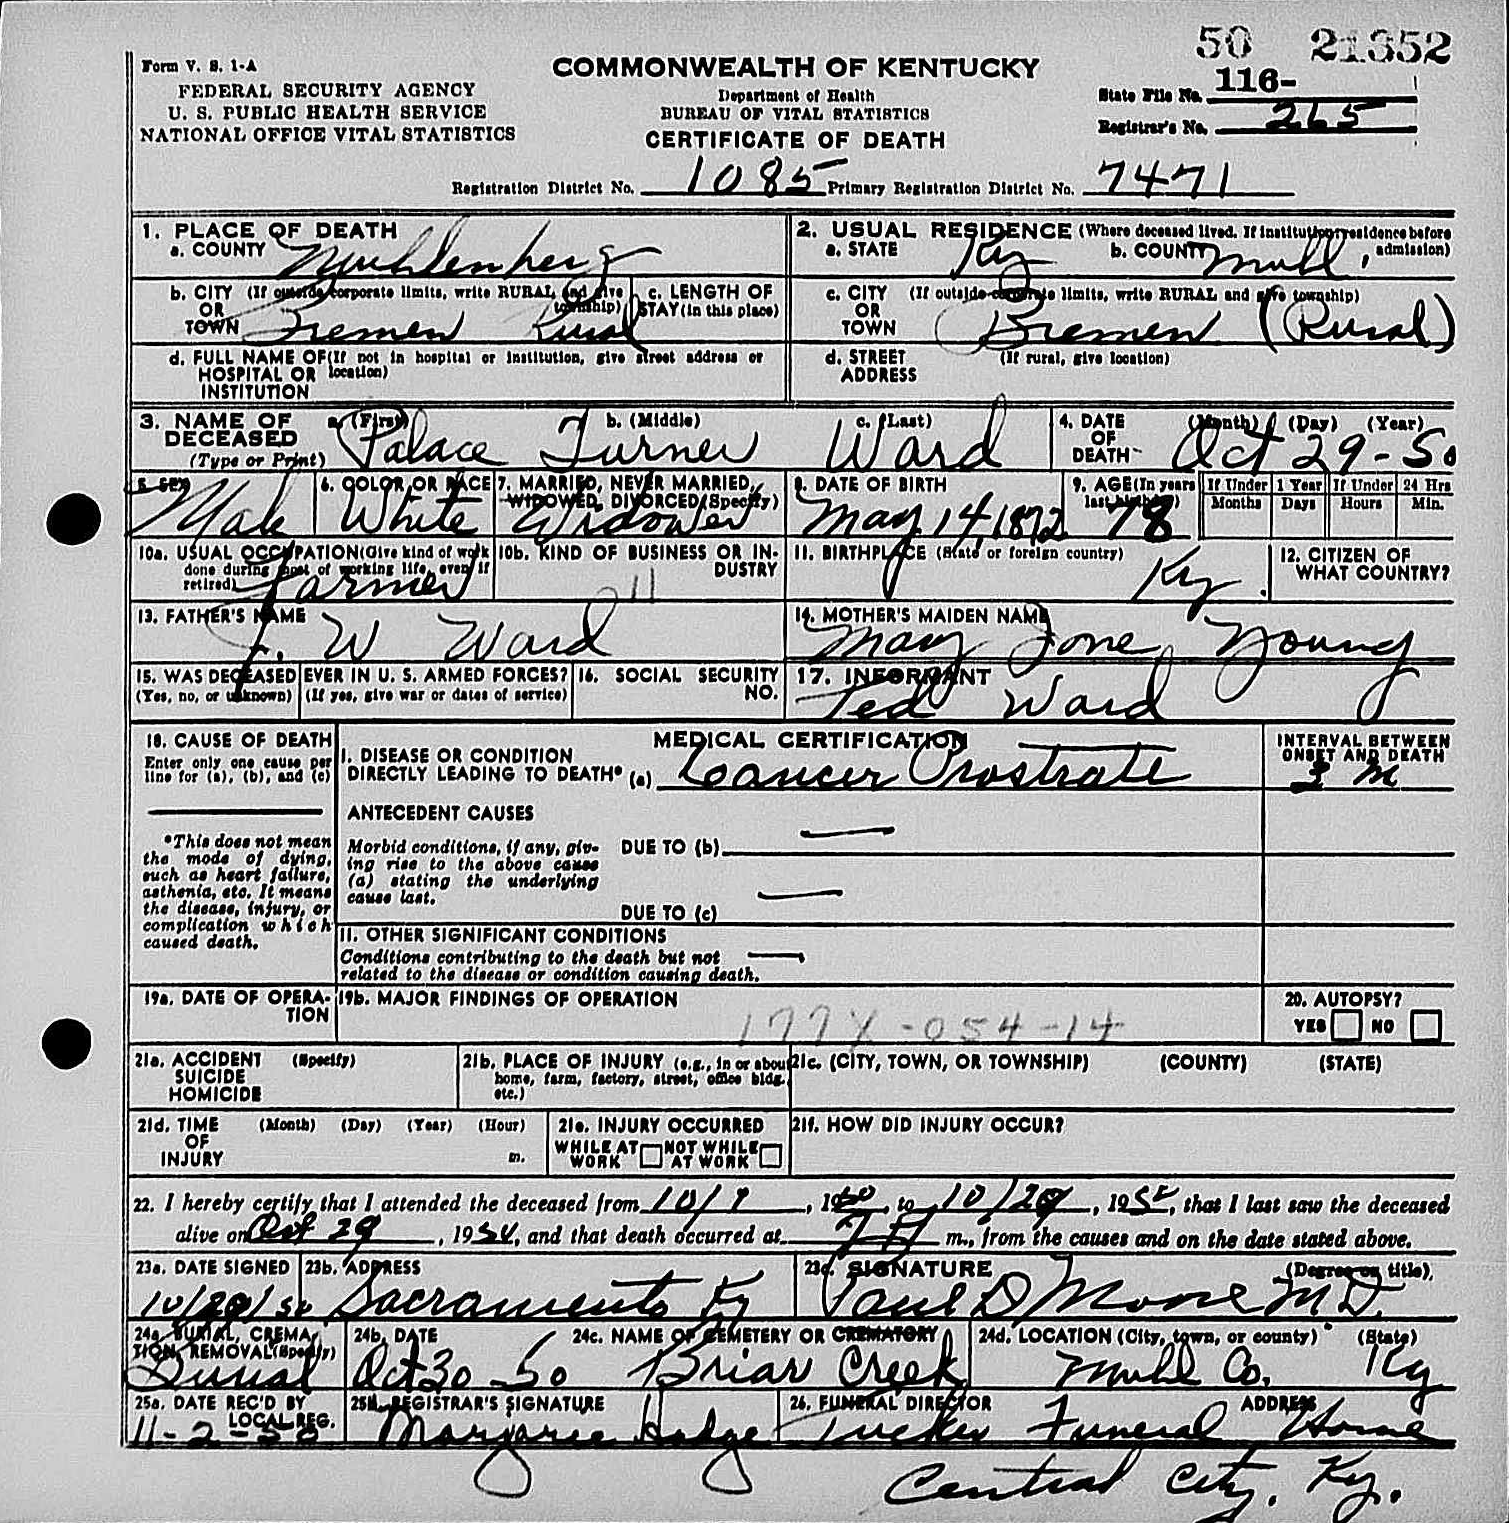 50 21352
Form V. S. 1-A
FEDERAL SECURITY AGENCY
U. S. PUBLIC HEALTH SERVICE
NATIONAL OFFICE VITAL STATISTICS
COMMONWEALTH OF KENTUCKY
Department of Health
BUREAU OF VITAL STATISTICS
CERTIFICATE OF DEATH
State File No. 116-
Registrar's No. 265
Registration District No. 1085 Primary Registration District No. 7471
1. PLACE OF DEATH
a. COUNTY Muhlenberg
2. USUAL RESIDENCE (Where deceased lived. If institution: residence before admission)
a. STATE Ky b. COUNTY Muhl
b. CITY (If outside corporate limits, write RURAL and give township)
OR
TOWN Bremen Rural
c. LENGTH OF
STAY (in this place)
c. CITY (If outside corporate limits, write RURAL and give township)
OR
TOWN Bremen (Rural)
d. FULL NAME OF (If not in hospital or institution, give street address or location)
HOSPITAL OR
INSTITUTION
d. STREET (If rural, give location)
ADDRESS
3. NAME OF DECEASED a. (First) b. (Middle) c. (Last)
(Type or Print) Palace Turner Ward
4. DATE OF DEATH (Month) (Day) (Year)
Oct 29-50
5. SEX Male
6. COLOR OR RACE White
7. MARRIED, NEVER MARRIED, WIDOWED, DIVORCED (Specify) Widower
8. DATE OF BIRTH May 14, 1872
9. AGE (In years last birthday) 78
If Under 1 Year Months Days
If Under 24 Hrs Hours Min.
10a. USUAL OCCUPATION (Give kind of work done during most of working life, even if retired) Farmer
10b. KIND OF BUSINESS OR INDUSTRY
11. BIRTHPLACE (State or foreign country) Ky.
12. CITIZEN OF WHAT COUNTRY?
13. FATHER'S NAME
J. W Ward
14. MOTHER'S MAIDEN NAME
May Jone Young
15. WAS DECEASED EVER IN U. S. ARMED FORCES?
(Yes, no, or unknown) (If yes, give war or dates of service)
16. SOCIAL SECURITY NO.
17. INFORMANT
Ted Ward
18. CAUSE OF DEATH
Enter only one cause per line for (a), (b), and (c)
*This does not mean the mode of dying, such as heart failure, asthenia, etc. It means the disease, injury, or complication which caused death.
MEDICAL CERTIFICATION
I. DISEASE OR CONDITION
DIRECTLY LEADING TO DEATH* (a) Cancer Prostrate
INTERVAL BETWEEN ONSET AND DEATH
ANTECEDENT CAUSES
Morbid conditions, if any, giving rise to the above cause (a) stating the underlying cause last.
DUE TO (b) —
DUE TO (c) —
II. OTHER SIGNIFICANT CONDITIONS
Conditions contributing to the death but not related to the disease or condition causing death. —
19a. DATE OF OPERATION
19b. MAJOR FINDINGS OF OPERATION
177X-054-14
20. AUTOPSY?
YES NO
21a. ACCIDENT (Specify)
SUICIDE
HOMICIDE
21b. PLACE OF INJURY (e.g., in or about home, farm, factory, street, office bldg., etc.)
21c. (CITY, TOWN, OR TOWNSHIP) (COUNTY) (STATE)
21d. TIME (Month) (Day) (Year) (Hour)
OF
INJURY m.
21e. INJURY OCCURRED
WHILE AT WORK NOT WHILE AT WORK
21f. HOW DID INJURY OCCUR?
22. I hereby certify that I attended the deceased from 10/1, 1950, to 10/29, 1950, that I last saw the deceased
alive on Oct 29, 1950, and that death occurred at m., from the causes and on the date stated above.
23a. DATE SIGNED 10/29/50
23b. ADDRESS Sacramento Ky
23c. SIGNATURE (Degree or title)
Paul D Moore M D.
24a. BURIAL, CREMATION, REMOVAL (Specify) Burial
24b. DATE Oct 30-50
24c. NAME OF CEMETERY OR CREMATORY Briar Creek
24d. LOCATION (City, town, or county) (State)
Muhl Co. Ky
25a. DATE REC'D BY LOCAL REG. 11-2-50
25b. REGISTRAR'S SIGNATURE
Marjorie Hodge
26. FUNERAL DIRECTOR ADDRESS
Tucker Funeral Home
Central City, Ky.